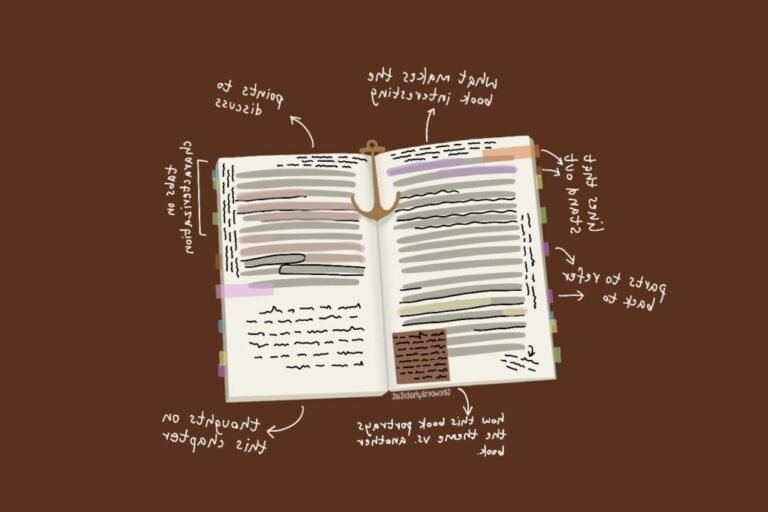 points to
discuss
what makes the
book interesting
tabs on
characterization
lines that
stand out
parts to refer
back to
thewordyhabitat
thoughts on
this chapter
how this book portrays
the theme vs. another
book.